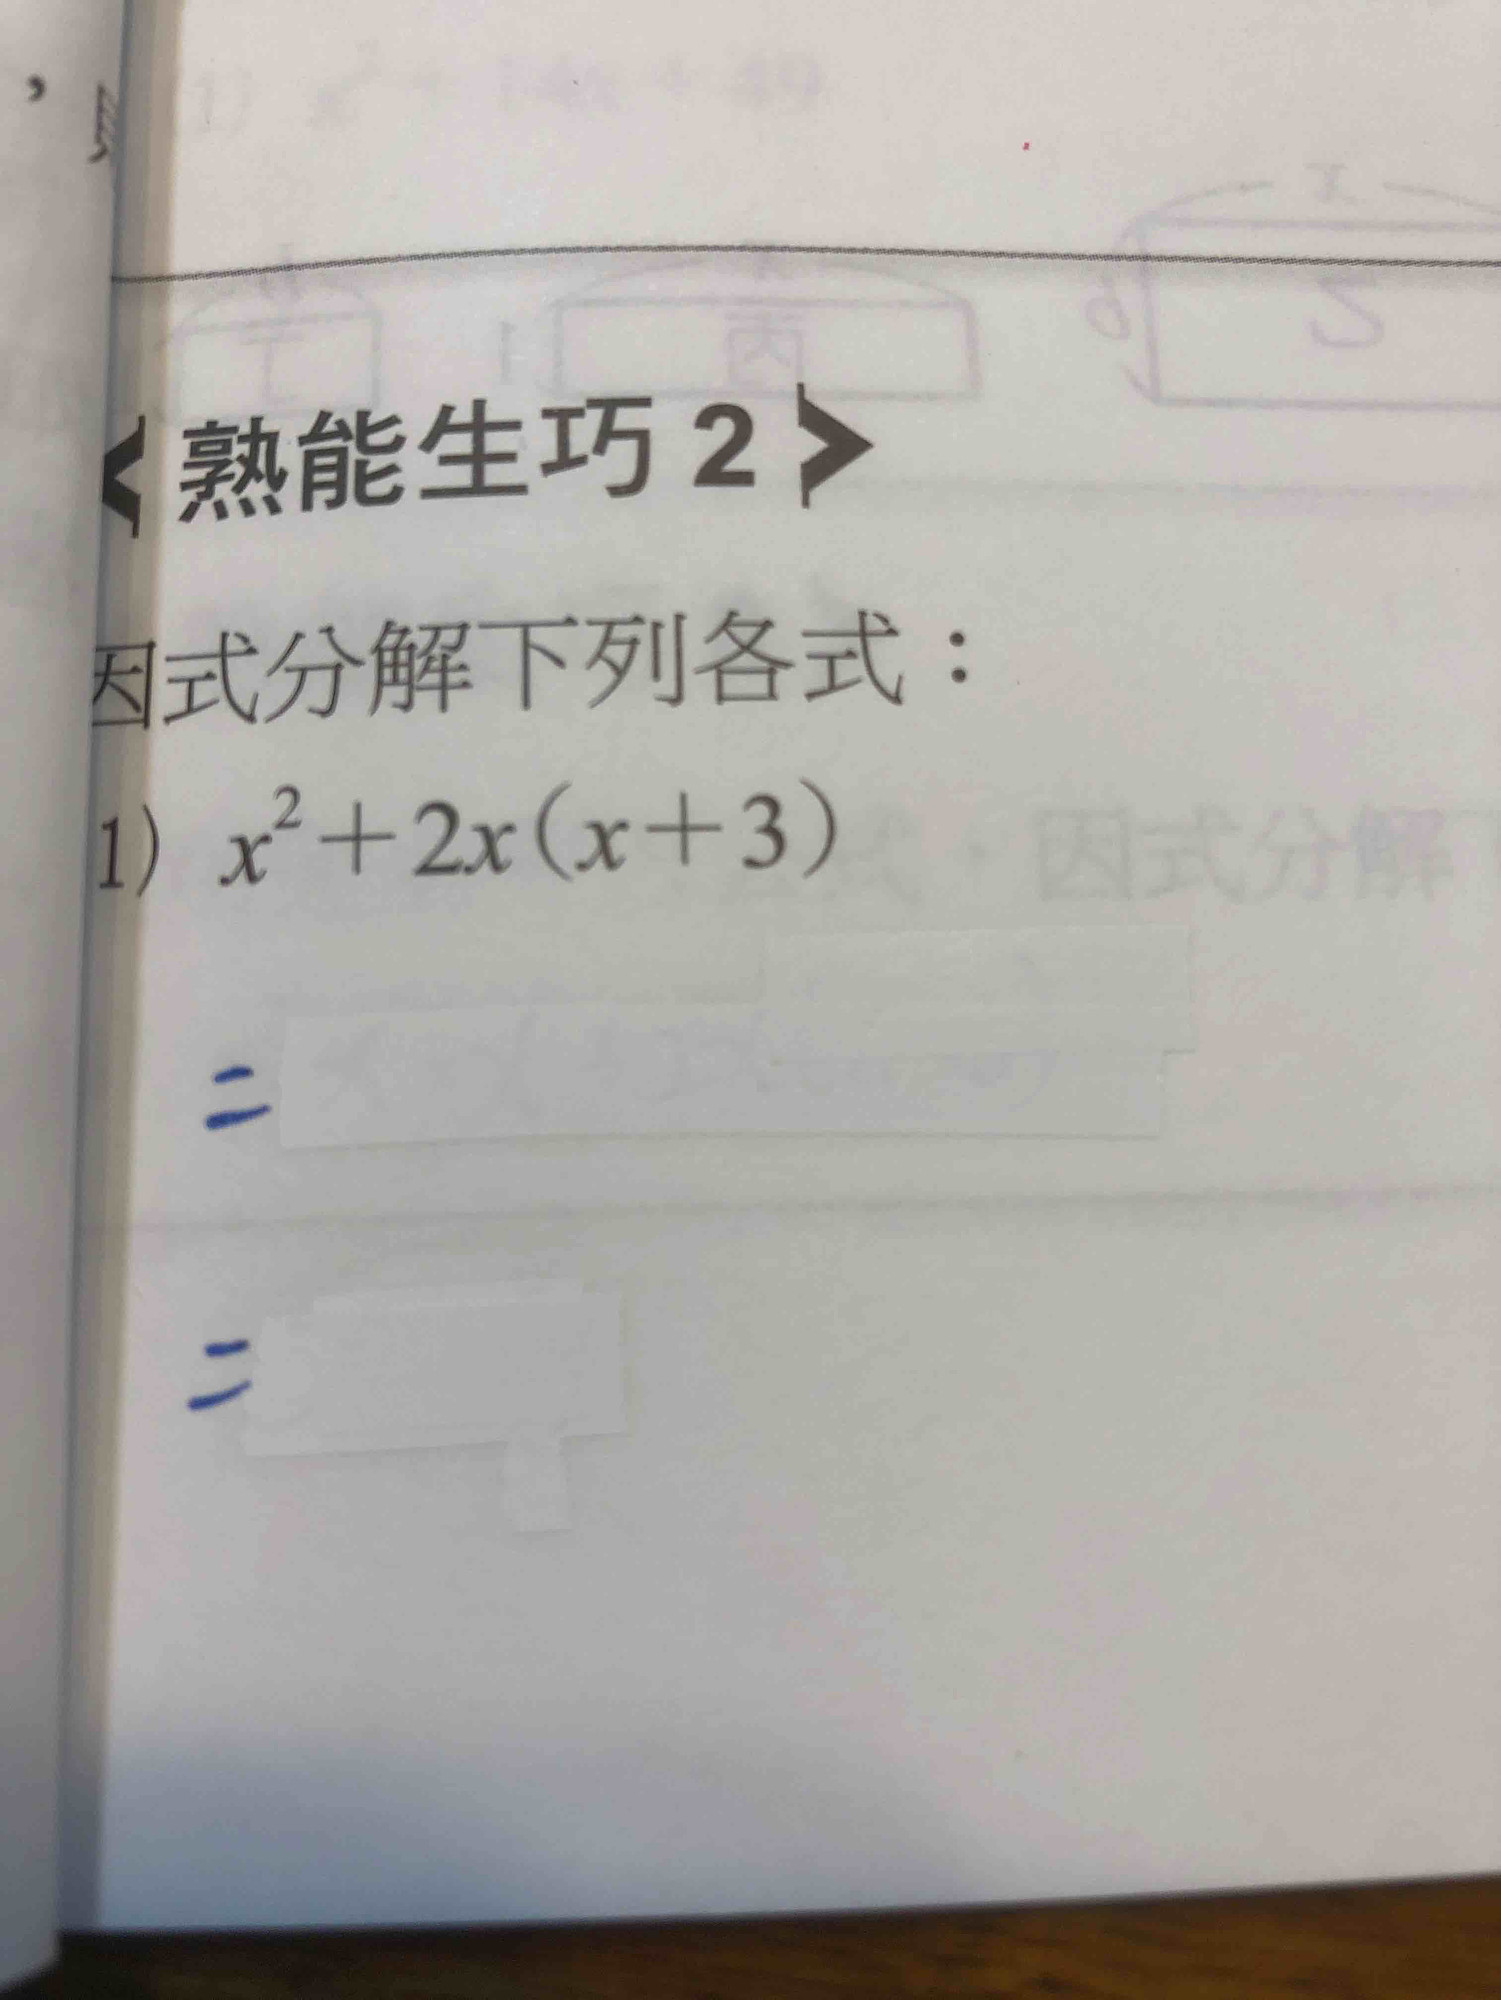 ，
＜熟能生巧 2＞
因式分解下列各式：
1) x²+2x(x+3)
=
=